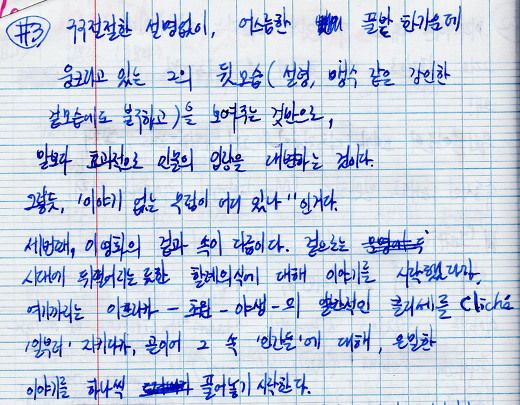 #3 구구절절한 설명없이, 어스름한 풀밭 한가운데
웅크리고 있는 그의 뒷모습(설령, 맹수 같은 강인한
겉모습에도 불구하고)을 보여주는 것만으로,
말보다 효과적으로 인물의 입장을 대변하는 것이다.
그렇듯, '이야기 없는 무덤이 어디 있나"인거다.
세번째, 이영화의 겉과 속이 다름이다. 겉으로는
시대에 뒤떨어지는 듯한 할례의식에 대해 이야기를 시작했다가,
여기까지는 아프리카 - 초원 - 야생 - 의 일반적인 클리셰를 Cliché
'일부러' 지키다가, 곧이어 그 속 '인간들'에 대해, 은밀한
이야기를 하나씩 풀어놓기 시작한다.